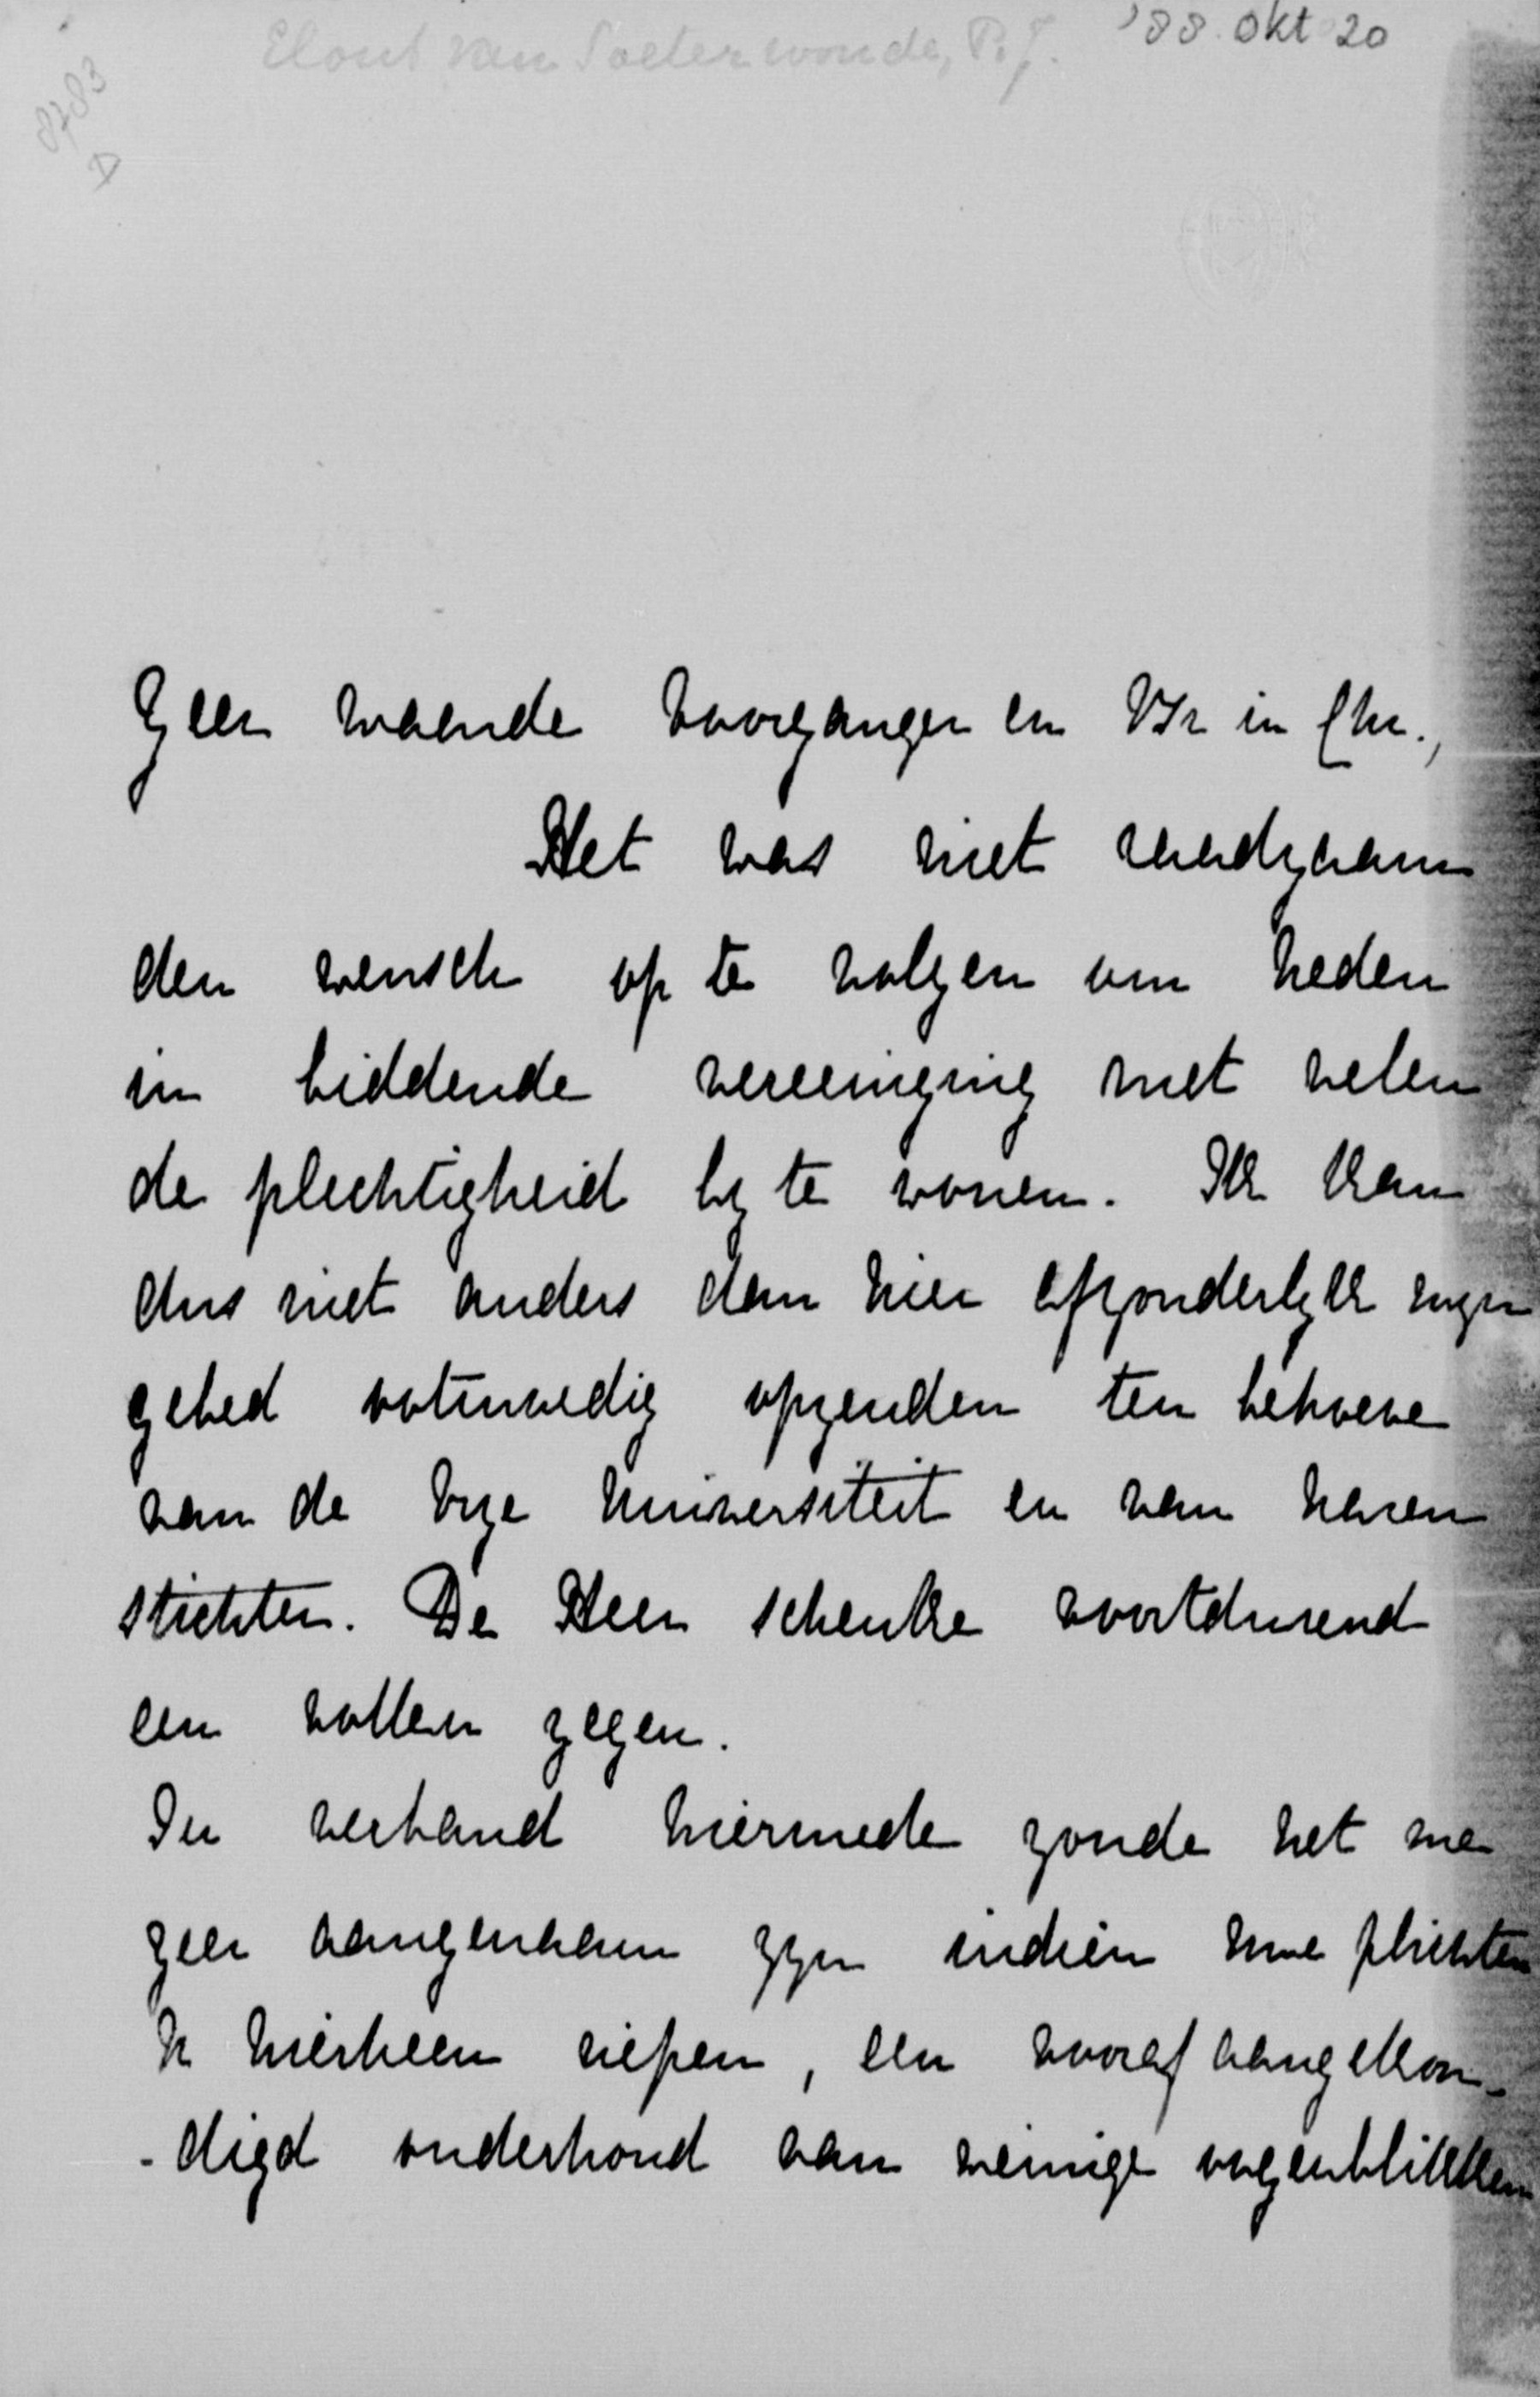 Elout van Soeterwoude, P.J. '88 okt 20
8783
D
Zeer waarde voorganger en Br in Chr.,
Het was niet raadzaam
den wensch op te volgen om heden
in biddende vereeniging met velen
de plechtigheid by te wonen. Ik kan
dus niet anders dan hier afzonderlyk myn
gebed ootmoedig opzenden ten behoeve
van de Vrye Universiteit en van haren
stichter. De Heer schenke voortdurend
een vollen zegen.
In verband hiermede zoude het me
zeer aangenaam zyn indien uwe plichten
U hierheen riepen, een vooraf aangekon-
-digd onderhoud van weinige oogenblikken